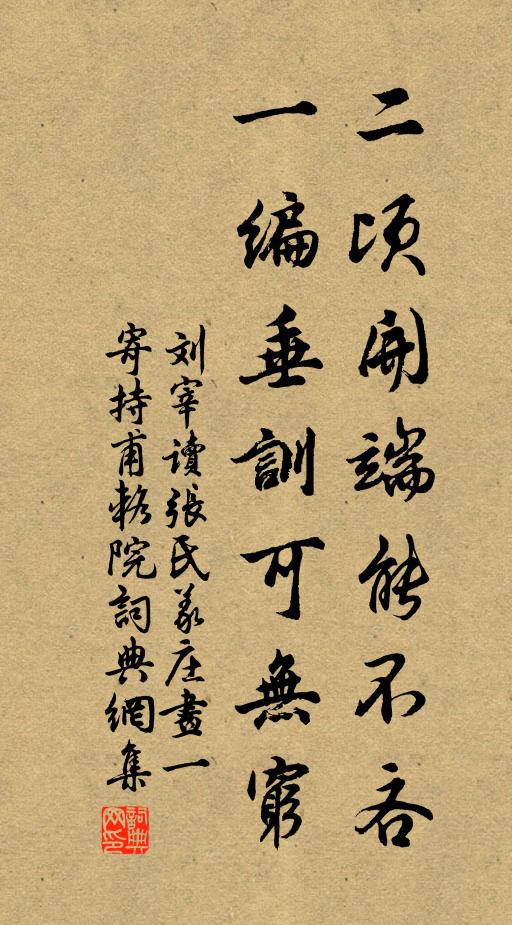 二頃開端能不吝
一編垂訓可無窮
刘宰读張氏义庄畫一
寄持甫教院詞典網集
詞典网印